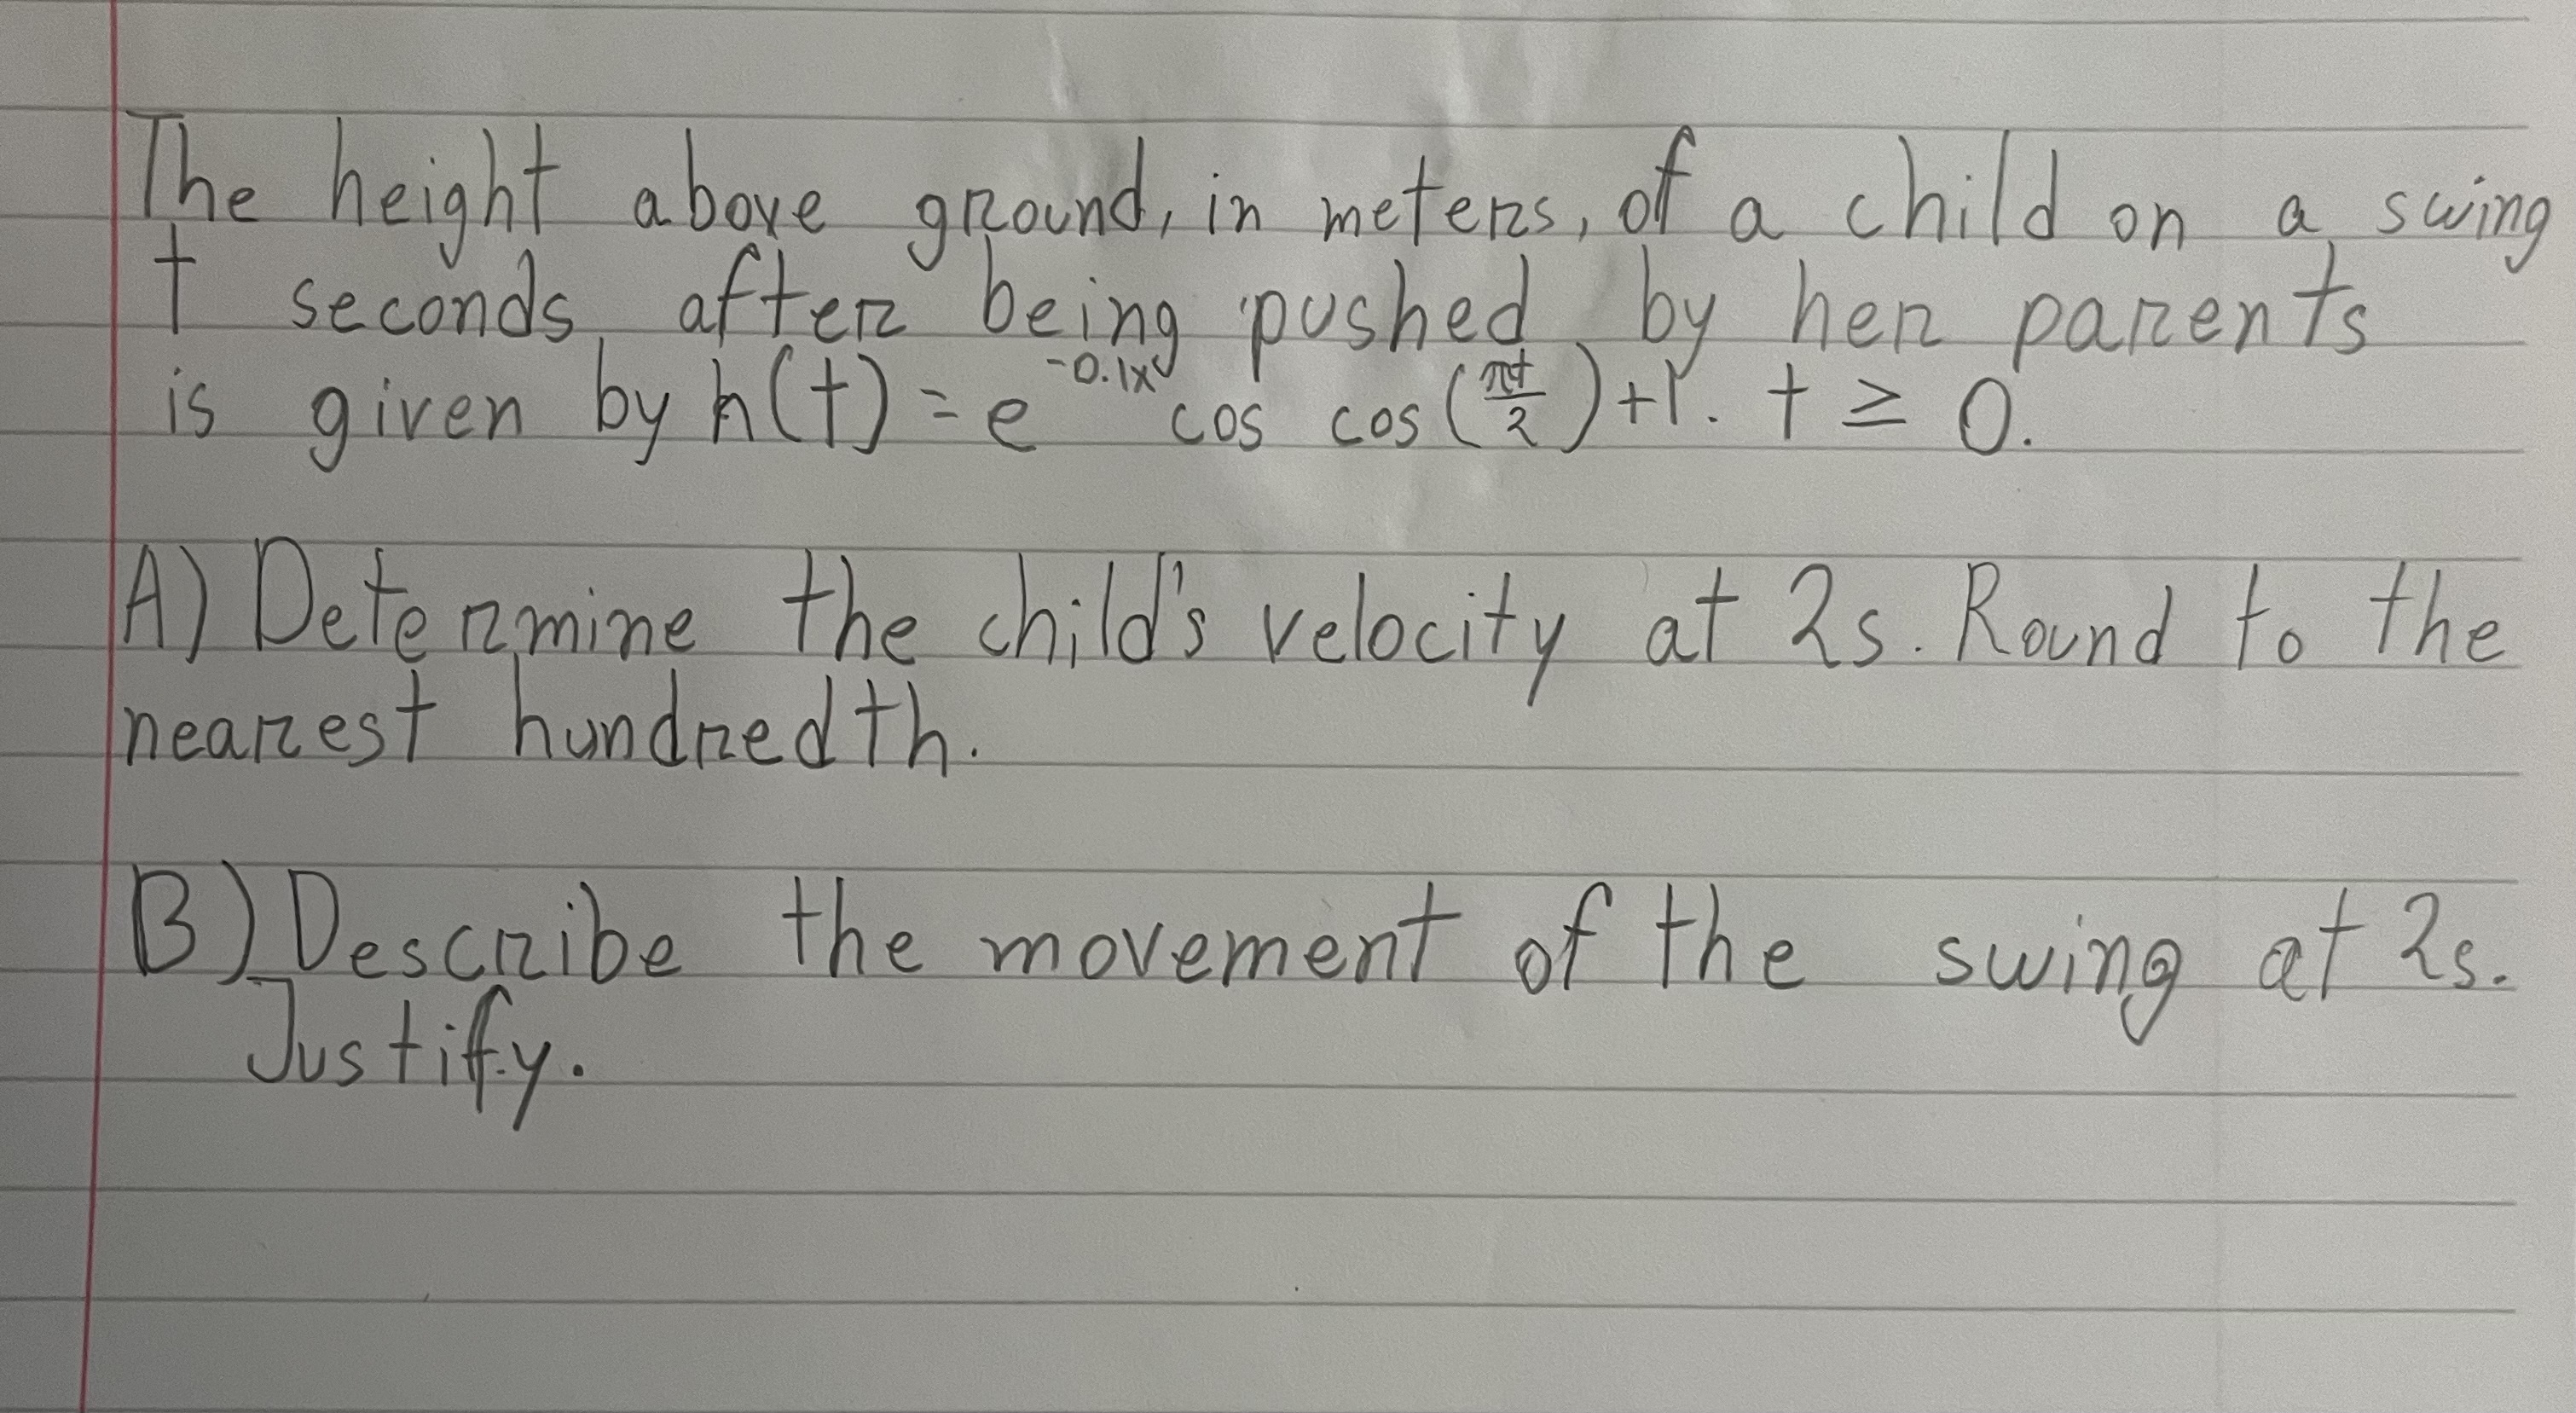 The height above ground, in meters, of a child on a swing
t seconds after being pushed by her parents
is given by h(t) = e^-0.1x cos cos(πt/2)+1. t ≥ 0.
A) Determine the child's velocity at 2s. Round to the
nearest hundredth.
B) Describe the movement of the swing at 2s.
Justify.